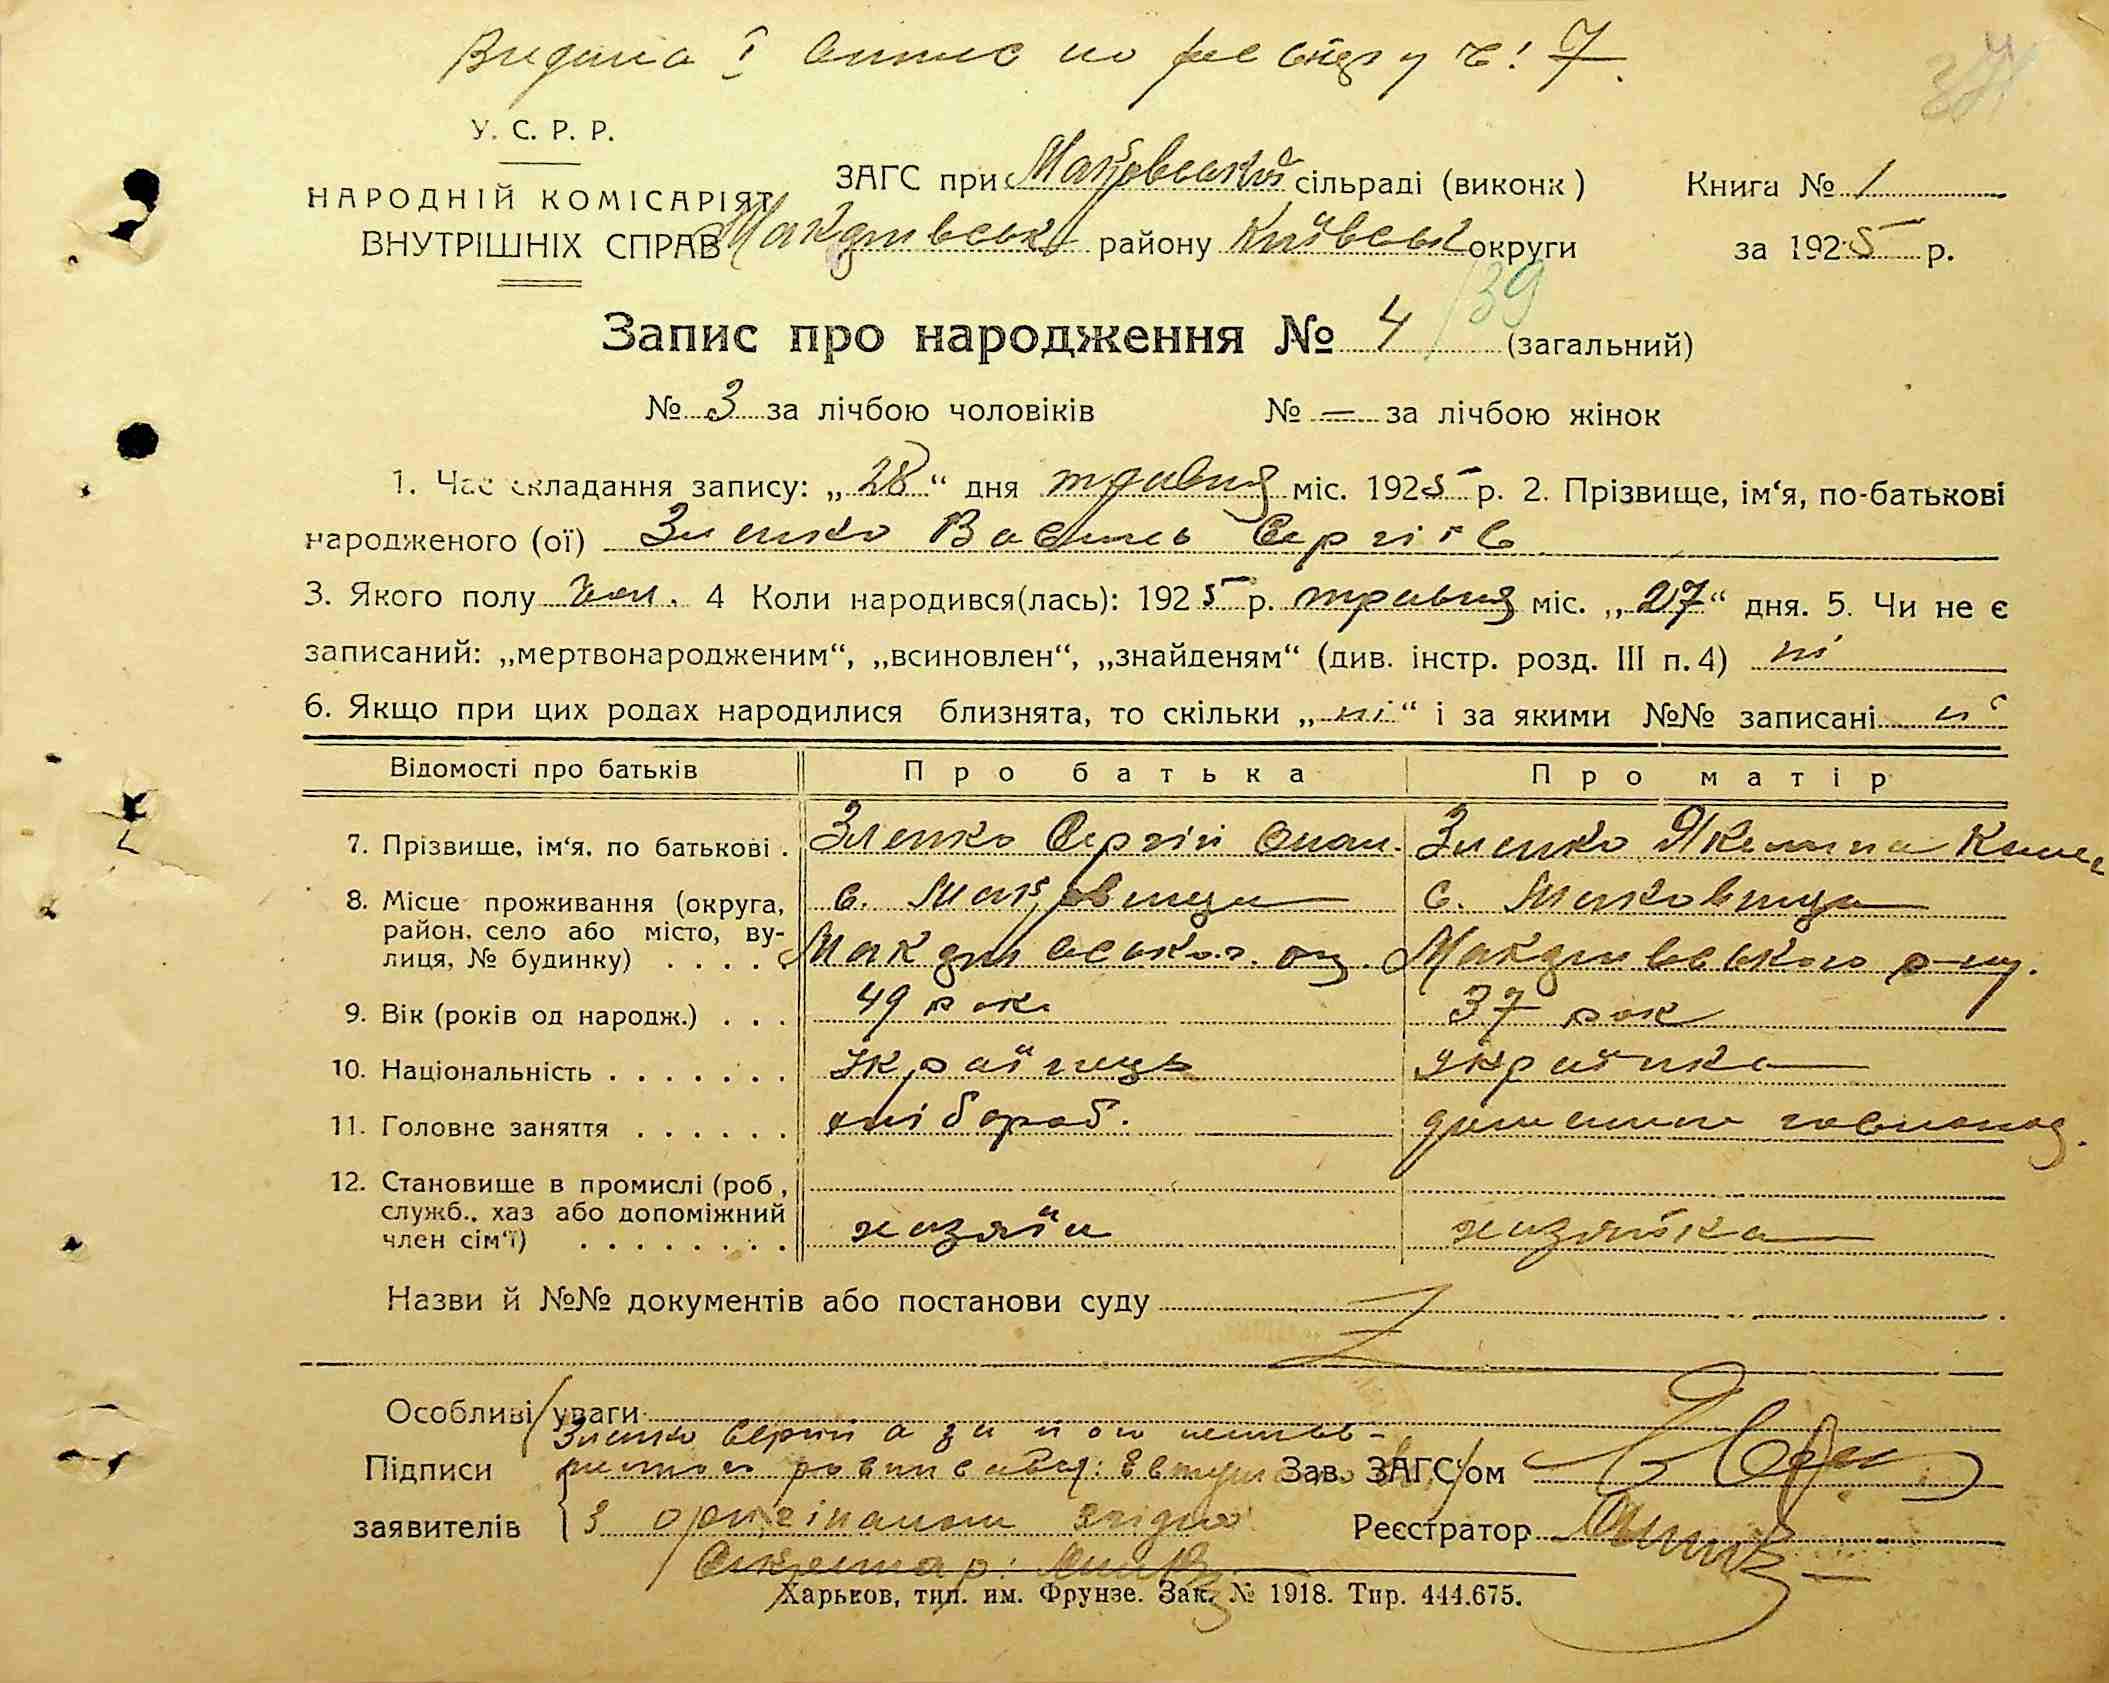 Видана І витяг по реєстру ч: 7.
37
У. С. Р. Р.
НАРОДНІЙ КОМІСАРІЯТ
ВНУТРІШНІХ СПРАВ
ЗАГС при Маковській сільраді (виконк)
Книга № 1
Макарівськ району Київськ округи
за 1925 р.
Запис про народження № 4/39 (загальний)
№ 3 за лічбою чоловіків № = за лічбою жінок
1. Час складання запису: „28“ дня травня міс. 1925 р. 2. Прізвище, ім‘я, по-батькові
народженого (ої) Зленко Василь Сергіїв
3. Якого полу чол. 4 Коли народився(лась): 1925 р. травня міс. „27“ дня. 5. Чи не є
записаний: „мертвонародженим“, „всиновлен“, „знайденям“ (див. інстр. розд. III п. 4) ні
6. Якщо при цих родах народилися близнята, то скільки „ні“ і за якими №№ записані ні
Відомості про батьків Про батька Про матір
7. Прізвище, ім‘я, по батькові . Зленко Сергій Зленко Якелина
8. Місце проживання (округа, район, село або місто, вулиця, № будинку) . . . . с. Маковища с. Маковища
Макарівського р-ну.
9. Вік (років од народж.) . . . 49 рок. 37 рок
10. Національність . . . . . . . українець українка
11. Головне заняття . . . . . . хлібораб. домашнє господ.
12. Становище в промислі (роб, служб., хаз або допоміжний член сім‘ї) . . . . . . . . хазяїн хазяйка
Назви й №№ документів або постанови суду
Особливі уваги
Зленко Сергій а за його непись-
Підписи
менного розписався:
Зав. ЗАГС‘ом
заявителів
З оригіналом згідно
Реєстратор
Секретар:
Харьков, тип. им. Фрунзе. Зак. № 1918. Тир. 444.675.